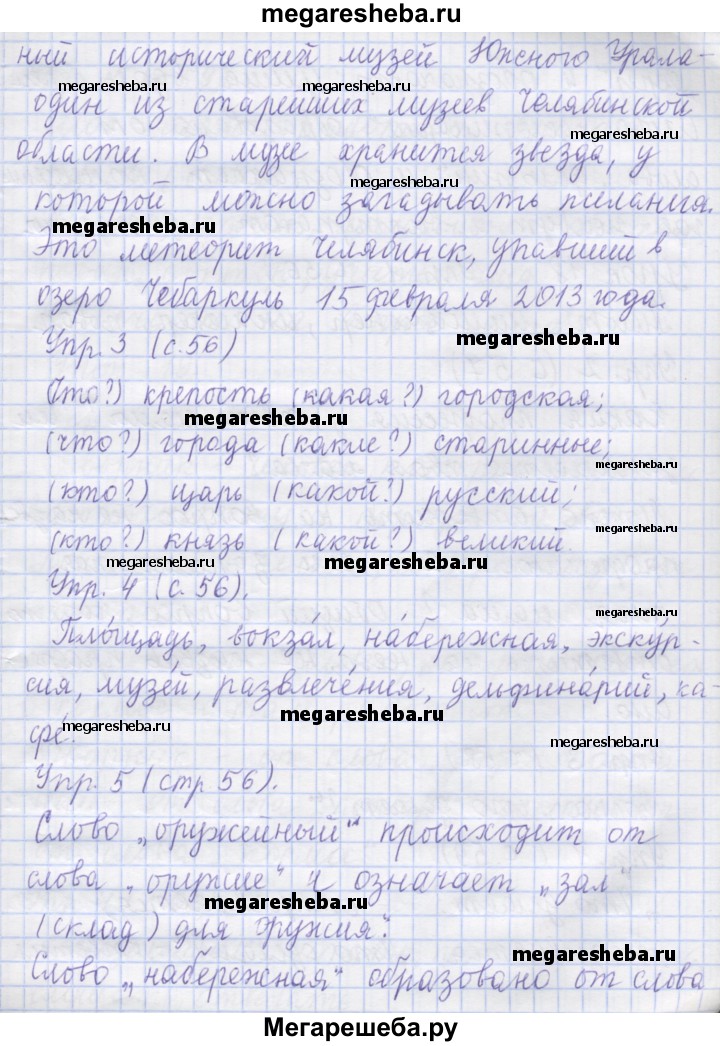 megaresheba.ru
ный исторический музей Южного Урала-
megaresheba.ru megaresheba.ru
один из старейших музеев Челябинской
megaresheba.ru
области. В музее хранится звезда, у
megaresheba.ru
которой можно загадывать желания.
megaresheba.ru
Это метеорит Челябинск, упавший в
озеро Чебаркуль 15 февраля 2013 года.
megaresheba.ru
Упр. 3 (с. 56)
(что?) крепость (какая?) городская;
megaresheba.ru
(что?) города (какие?) старинные;
megaresheba.ru
(кто?) царь (какой?) русский;
megaresheba.ru
(кто?) князь (какой?) великий.
megaresheba.ru megaresheba.ru
Упр. 4 (с. 56).
megaresheba.ru
Пло́щадь, вокза́л, на́бережная, экску́р-
сия, музе́й, развлече́ния, дельфина́рий, ка-
megaresheba.ru megaresheba.ru
фе́.
megaresheba.ru
Упр. 5 (стр 56).
Слово „оружейный“ происходит от
слова „оружие“ и означает „зал
megaresheba.ru
(склад) для оружия“.
megaresheba.ru
Слово „набережная“ образовано от слова
Мегарешеба.ру